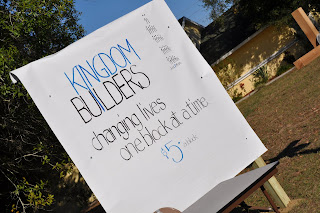 KINGDOM
BUILDERS
changing lives
one block at a time.
$5